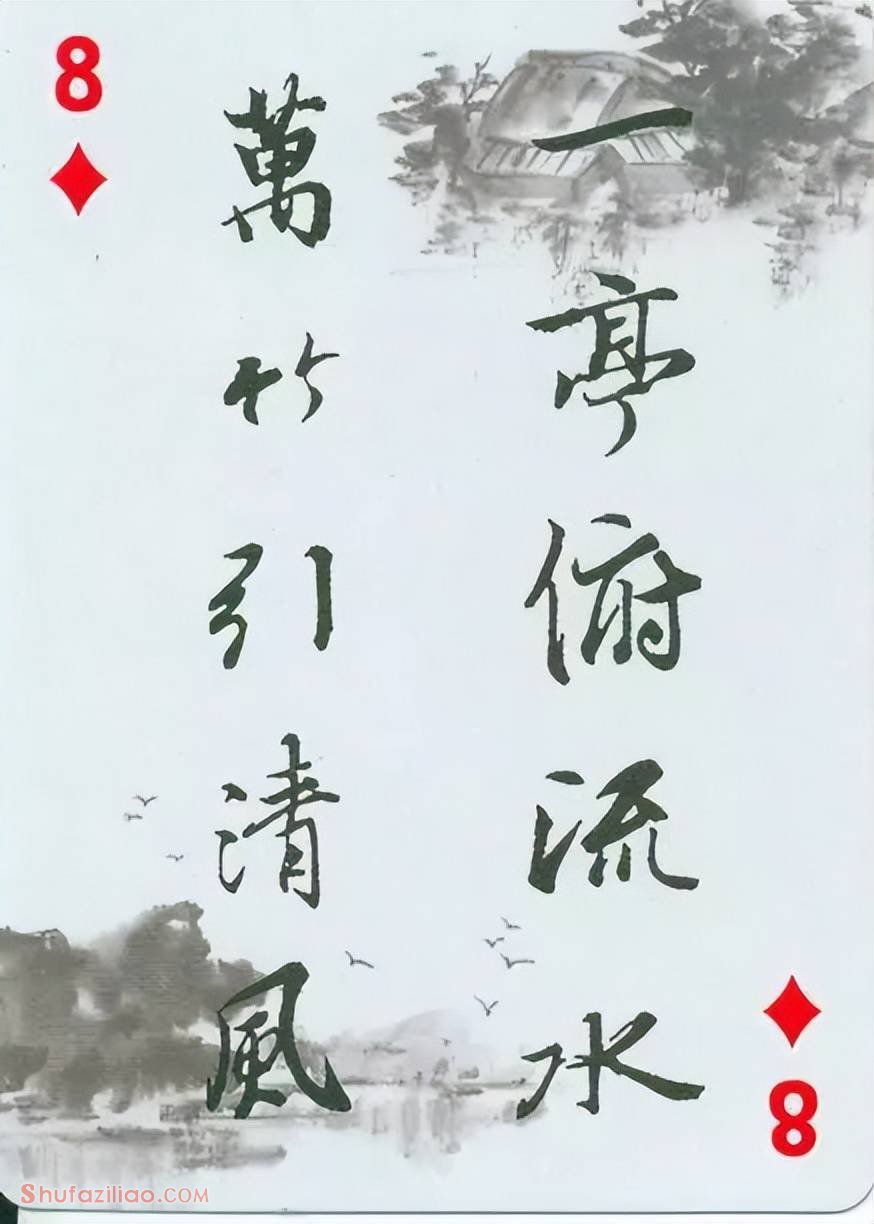 8
一亭俯流水
萬竹引清風
8
Shufaziliao.COM